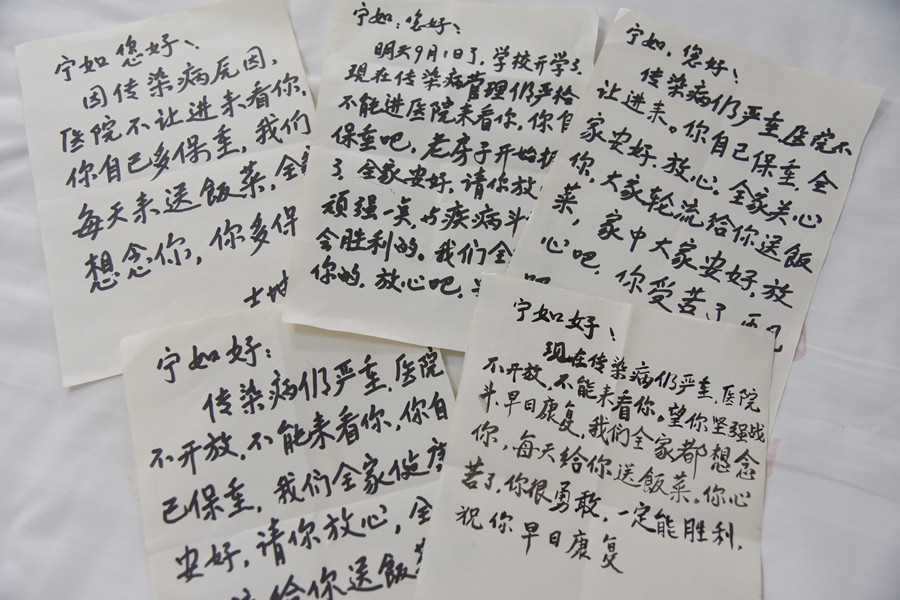 宁如您好、
因传染病原因,
医院不让进来看你,
你自己多保重,我们
每天来送饭菜,全
想念你,你多保
宁如:您好、
明天9月1日了,学校开学了,
现在传染病管理仍严格
不能进医院来看你,你自
保重吧,老房子开始
了全家安好,请你放
顽强一点,与疾病斗
会胜利的。我们全
你的,放心吧,
宁如,您好、
传染病仍严重,医院不
让进来。你自己保重,全
家安好,放心。全家关心
你,大家轮流给你送饭
菜,家中大家安好,放
心吧,你受苦了
宁如好:
传染病仍严重,医院
不开放,不能来看你,你自
己保重,我们全家健康
安好,请你放心,全
给你送饭
宁如好、
现在传染病仍严重,医院
不开放,不能来看你。望你坚强战
斗,早日康复,我们全家都想念
你,每天给你送饭菜。你心
苦了,你很勇敢,一定能胜利,
祝你早日康复